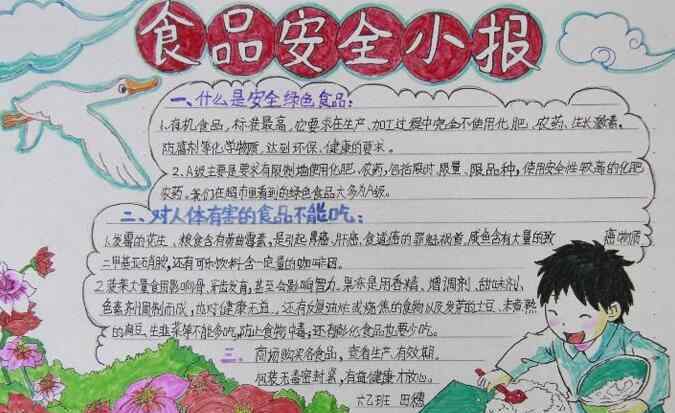 食品安全小报
一、什么是安全绿色食品:
1.有机食品,标准最高,它要求在生产、加工过程中完全不使用化肥、农药、生长激素、
防腐剂等化学物质,达到环保、健康的要求。
2.A级主要是要求有限制地使用化肥、农药,包括限时、限量、限品种,使用安全性较高的化肥
农药。我们在超市里看到的绿色食品大多为A级。
二、对人体有害的食品不能吃:
1.发霉的花生、粮食含有黄曲霉素,是引起胃癌、肝癌、食道癌的罪魁祸首,咸鱼含有大量的致 癌物质
二甲基亚硝胺,还有可乐饮料含一定量的咖啡因。
2.菠菜大量食用影响骨、牙齿发育,甚至会影响智力。果冻是用香精、增调剂、甜味剂、
色素剂调制而成,也对健康无益。还有反复油炸或烧焦的食物以及发芽的土豆、未煮熟
的扁豆,生韭菜等不能多吃,防止食物中毒,还有膨化食品也要少吃。
三、商场购买各食品,查看生产、有效期。
包装无毒密封紧,有益健康才放心。
六乙班 田穗